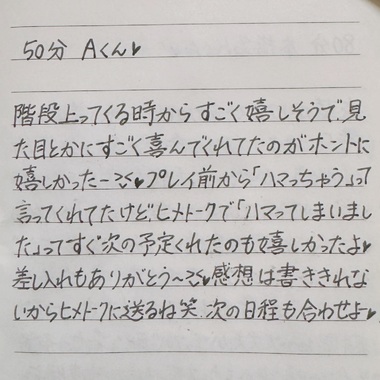 50分 Aくん♥
階段上ってくる時からすごく嬉しそうで、見
た目とかにすごく喜んでくれてたのがホントに
嬉しかったー>з<♥プレイ前から「ハマっちゃう」って
言ってくれてたけど、ヒメトークで「ハマってしまいまし
た」ってすぐ次の予定くれたのも嬉しかったよ♥
差し入れもありがとう〜>з<♥感想は書ききれな
いからヒメトークに送るね笑、次の日程も合わせよ♥